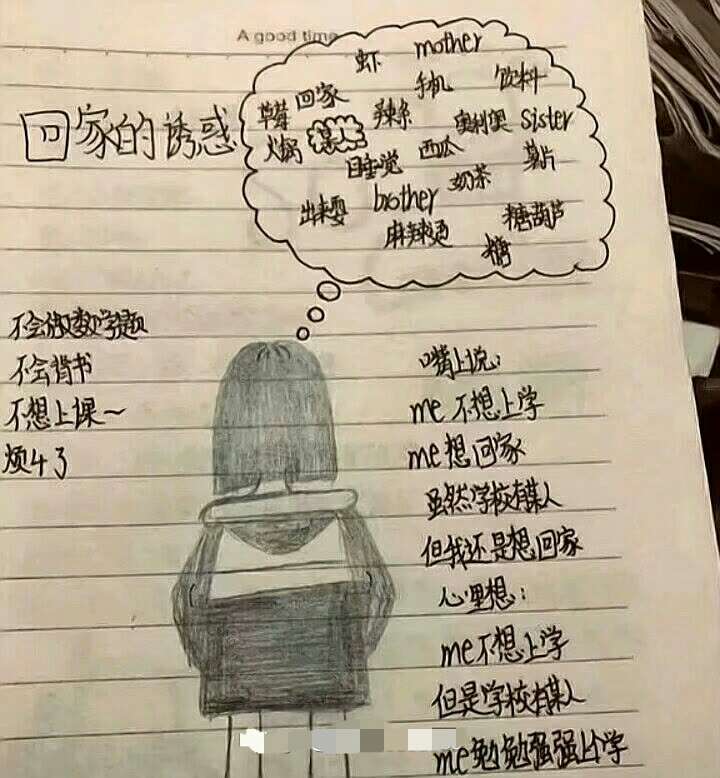 A good time
回家的诱惑
虾 mother
手机 饮料
草莓 回家 辣条 奥利奥 sister
火锅 某某 西瓜 薯片
睡觉 奶茶
出来耍 brother 糖葫芦
麻辣烫 糖
不会做数学题
不会背书
不想上课~
烦4了
嘴上说:
me 不想上学
me 想回家
虽然学校有某人
但我还是想回家
心里想:
me不想上学
但是学校有某人
me勉勉强强上个学